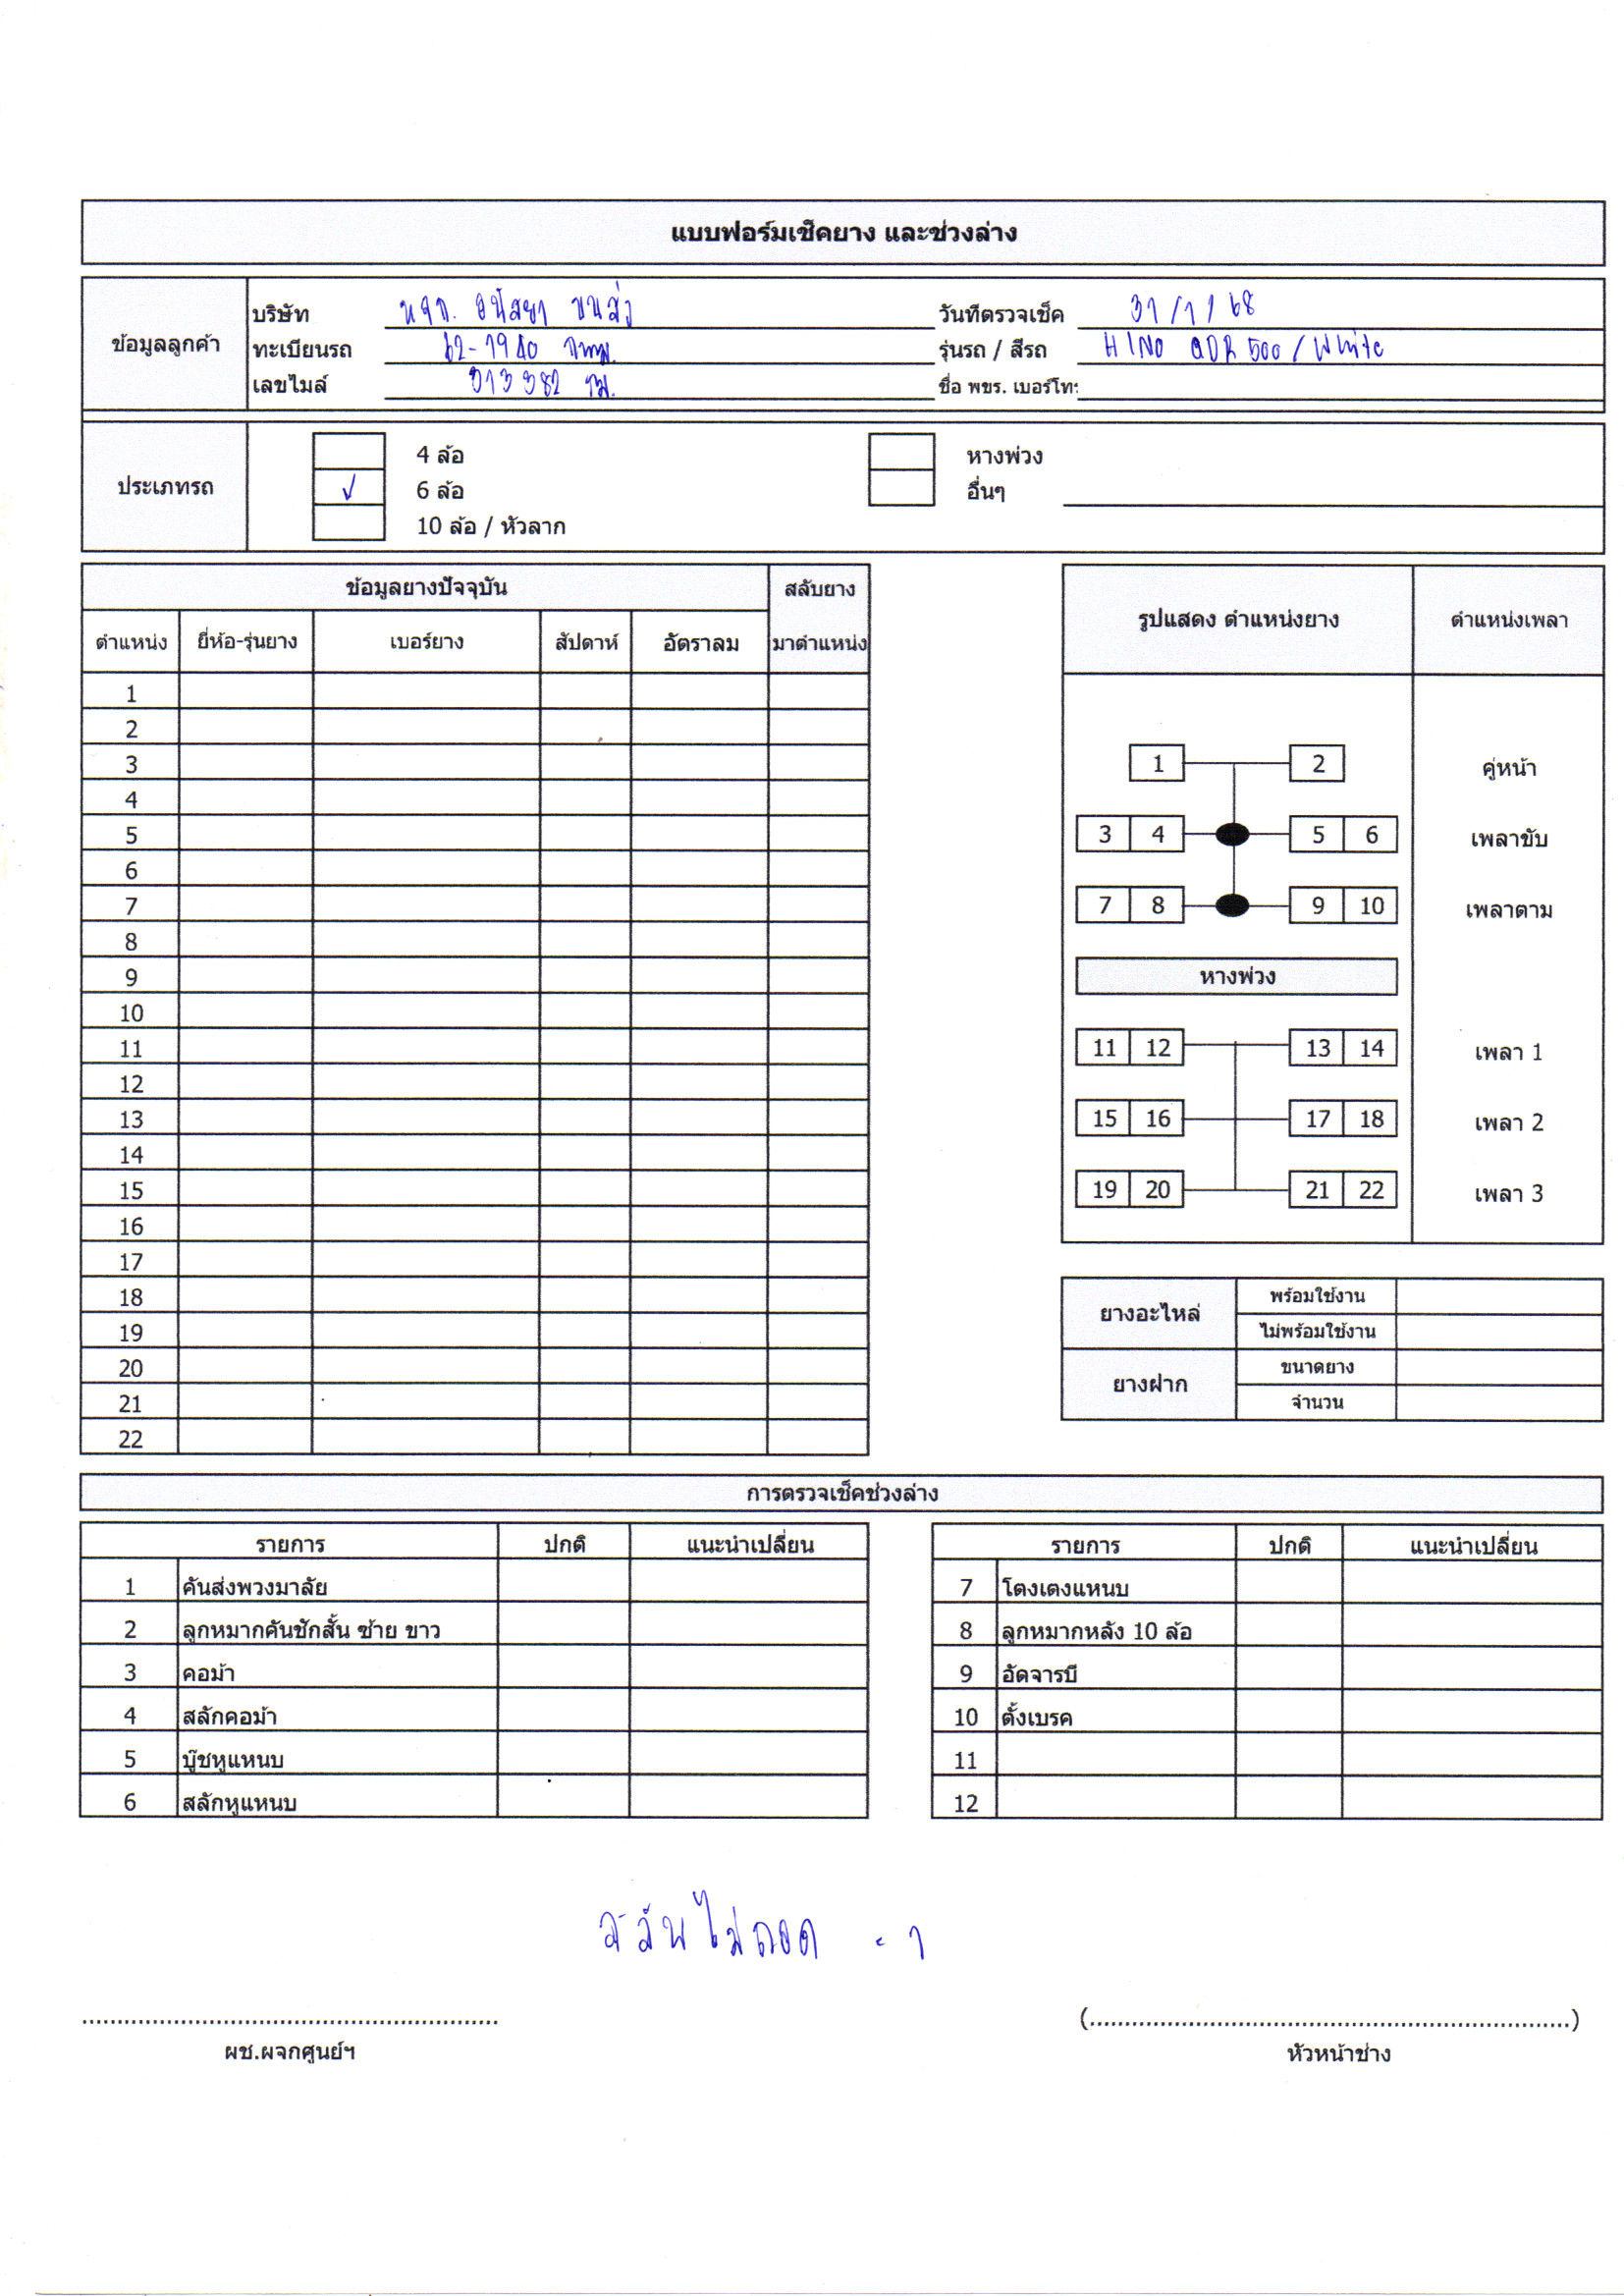 แบบฟอร์มเช็คยาง และช่วงล่าง
ข้อมูลลูกค้า
บริษัท หจก. อนัสยา ขนส่ง วันที่ตรวจเช็ค 31/1/68
ทะเบียนรถ 62-1940 กทม. รุ่นรถ / สีรถ HINO 500/White
เลขไมล์ 313382 กม. ชื่อ พขร. เบอร์โทร
ประเภทรถ
4 ล้อ หางพ่วง
✓ 6 ล้อ อื่นๆ
10 ล้อ / หัวลาก
ข้อมูลยางปัจจุบัน สลับยาง
ตำแหน่ง ยี่ห้อ-รุ่นยาง เบอร์ยาง สัปดาห์ อัตราลม มาตำแหน่ง
1
2
3
4
5
6
7
8
9
10
11
12
13
14
15
16
17
18
19
20
21
22
รูปแสดง ตำแหน่งยาง ตำแหน่งเพลา
1 2 คู่หน้า
3 4 5 6 เพลาขับ
7 8 9 10 เพลาตาม
หางพ่วง
11 12 13 14 เพลา 1
15 16 17 18 เพลา 2
19 20 21 22 เพลา 3
ยางอะไหล่ พร้อมใช้งาน
ไม่พร้อมใช้งาน
ยางฝาก ขนาดยาง
จำนวน
การตรวจเช็คช่วงล่าง
รายการ ปกติ แนะนำเปลี่ยน
1 คันส่งพวงมาลัย
2 ลูกหมากคันชักสั้น ซ้าย ขาว
3 คอม้า
4 สลักคอม้า
5 บู๊ชหูแหนบ
6 สลักหูแหนบ
รายการ ปกติ แนะนำเปลี่ยน
7 โตงเตงแหนบ
8 ลูกหมากหลัง 10 ล้อ
9 อัดจารบี
10 ตั้งเบรค
11
12
ไม่ถอด - 1
ผช.ผจกศูนย์ฯ
(....................................................................)
หัวหน้าช่าง